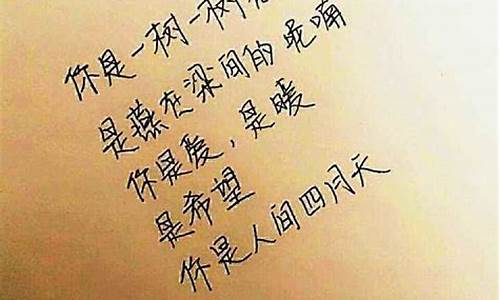 你是一树一树
是燕在梁间的呢喃
你是爱，是暖
是希望
你是人间四月天